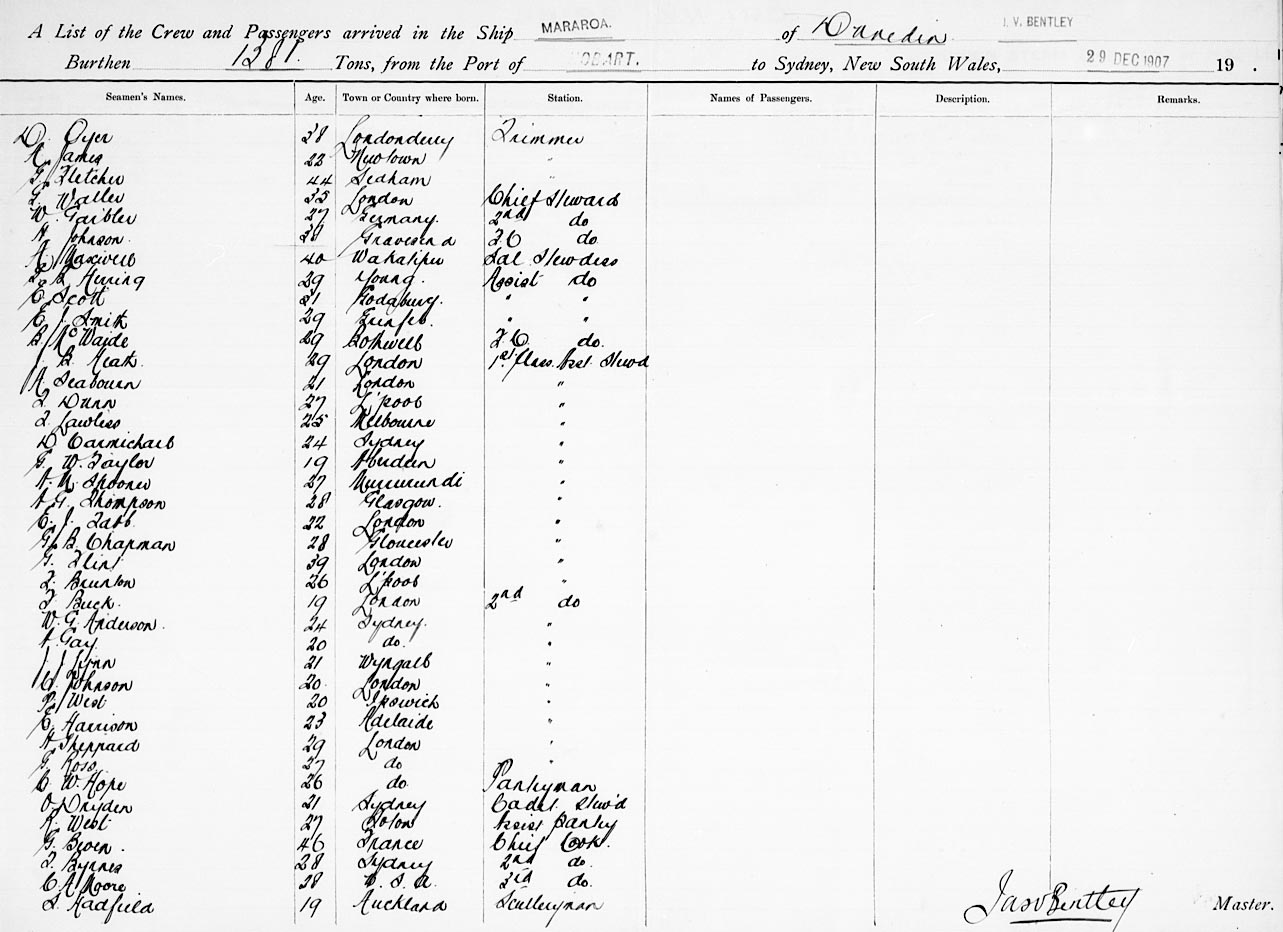 A List of the Crew and Passengers arrived in the Ship MARAROA. of Dunedin J. V. BENTLEY
Burthen 1381. Tons, from the Port of HOBART. to Sydney, New South Wales, 29 DEC 1907 19 .
Seamen's Names. Age. Town or Country where born. Station. Names of Passengers. Description. Remarks.
D. Oyer 38 Londonderry Trimmer
James 22 Newtown "
G. Fletcher 44 Seaham "
Waller 35 London Chief Steward
W. Gaibler 27 Germany. 2nd do
A. Johnson. 38 Gravesend do
A. Maxwell 40 Wakatipu Sal. Stewdess
Herring 29 Young. Assist do
E. Scott 31 " "
E. J. Smith 29 " "
B. McWaide 29 Bothwell do.
J. B. Heath. 29 London 1st Class Asst. Stewd
A. Seabourn 21 London "
Dunn 27 L'pool "
Lawless 25 Melbourne "
D Carmichael 24 Sydney "
G. W. Taylor 19 Aberdeen "
A. M. Spooner 27 Murrurundi "
A. G. Thompson 28 Glasgow. "
E. J. Tabb. 22 London "
G. B. Chapman 28 Gloucester "
G. Flint 39 London "
Brunton 26 L'pool "
Buck. 19 London 2nd do
W. G. Anderson. 24 Sydney. "
A. Gay. 20 do. "
J. J. Lynn 21 "
Johnson 20. London "
P. West 20 Ipswich "
E. Harrison 23 Adelaide "
A. Sheppard 29 London "
G. Ross. 27 do "
C. W. Hope 26 do. Pantryman
O. Dryden 21 Sydney Cadet. Stew'd
R. West 27 Assist Pantry
G. Beven. 46 France Chief Cook.
Byrnes 28 Sydney 2nd do.
C. A. Moore 28 U. S. A. 3rd do.
Hadfield 19 Auckland Sculleryman
Jas V Bentley Master.